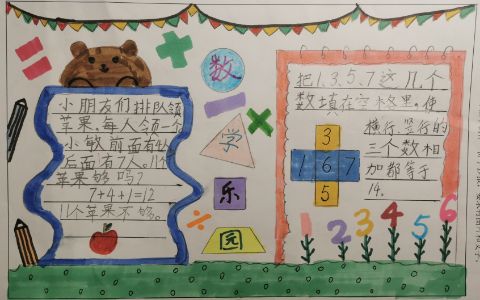 小朋友们排队领
苹果。每人领一个
小敏前面有4人
后面有7人。11个
苹果够吗?
7+4+1=12
11个苹果不够。
数
学
乐
园
把1、3、5、7这几个
数填在空本格里。使
横行、竖行的
三个数相
加都等于
14。
3
1 6 7
5
1 2 3 4 5 6